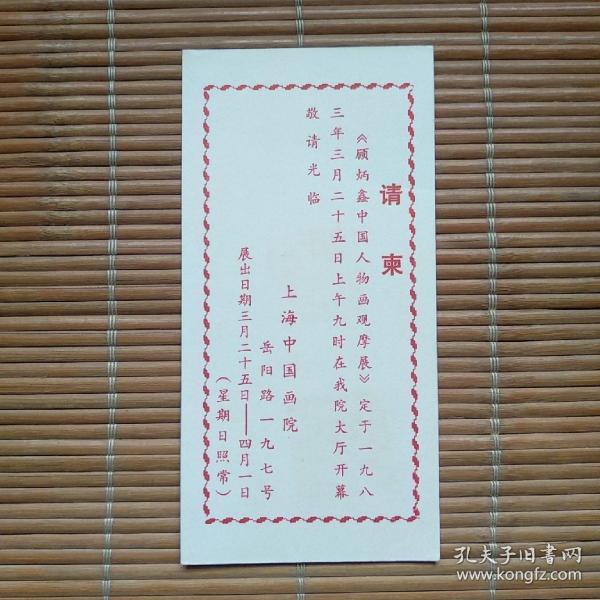 请柬
《顾炳鑫中国人物画观摩展》定于一九八
三年三月二十五日上午九时在我院大厅开幕
敬请光临
上海中国画院
岳阳路一九七号
展出日期三月二十五日——四月一日
（星期日照常）
孔夫子旧书网
www.kongfz.com